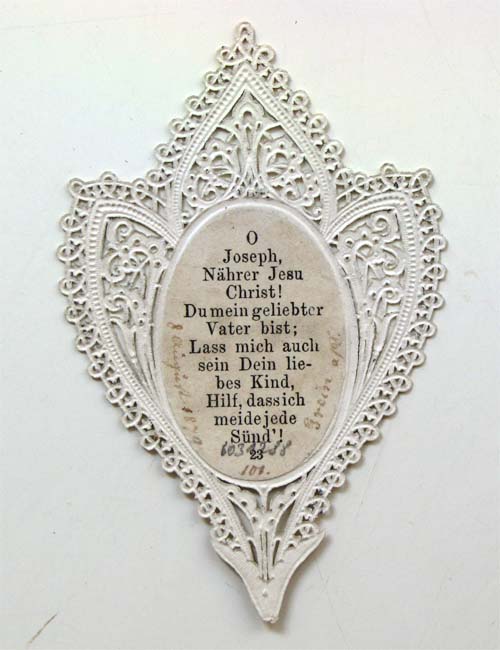 O
Joseph,
Nährer Jesu
Christ!
Du mein geliebter
Vater bist;
Lass mich auch
sein Dein lie-
bes Kind,
Hilf, dass ich
meide jede
Sünd'!
23
101.
8 August 1879